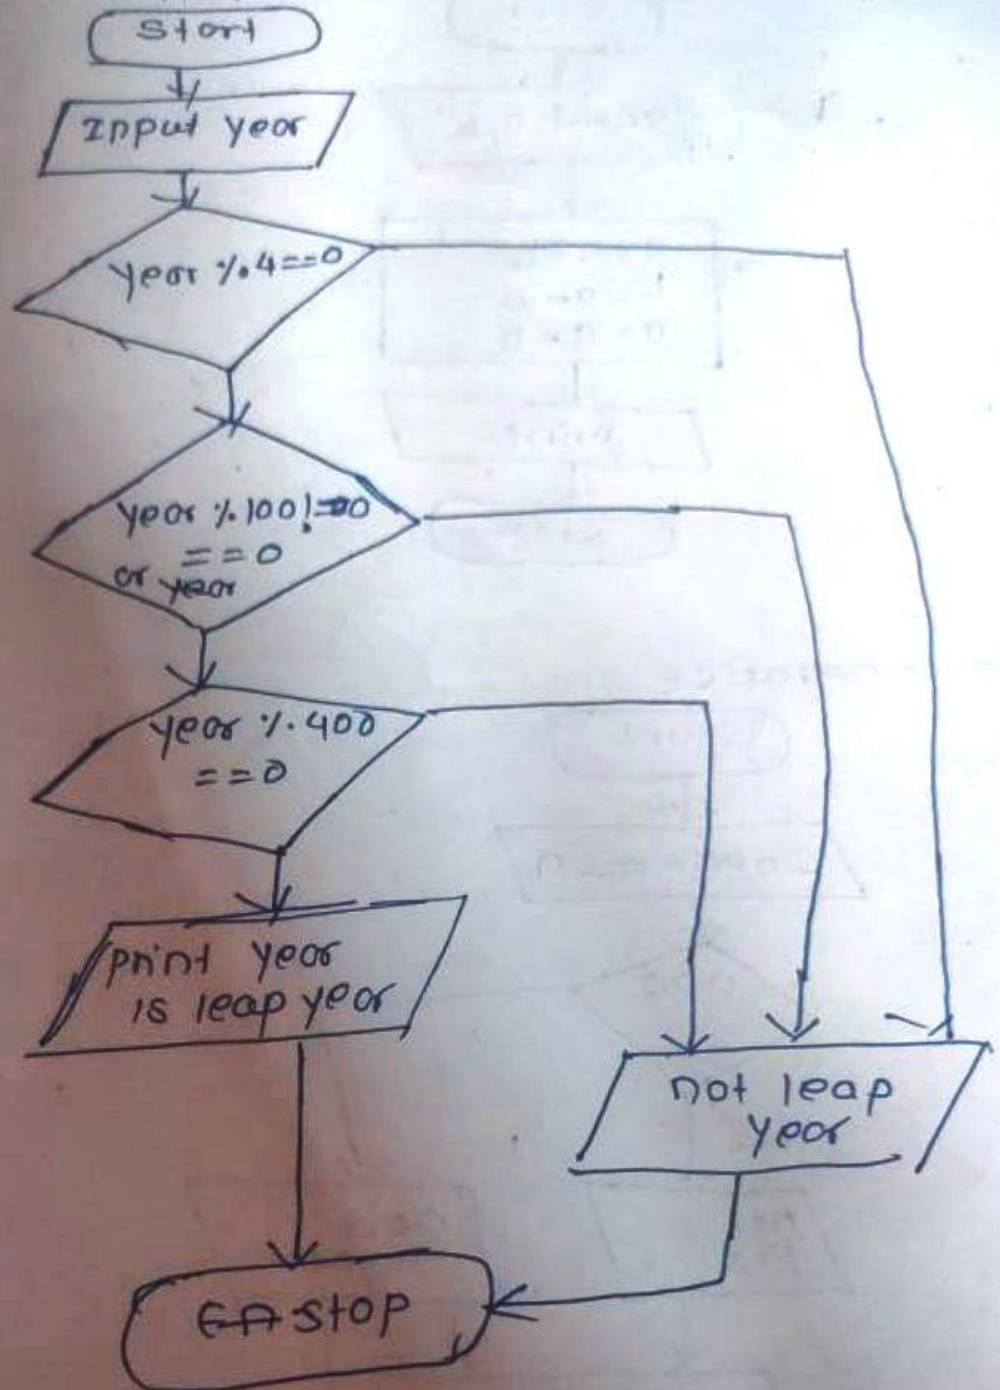 Start
Input year
year %.4==0
year %100!=00
==0
or year
year %.400
==0
print year
is leap year
not leap
year
stop